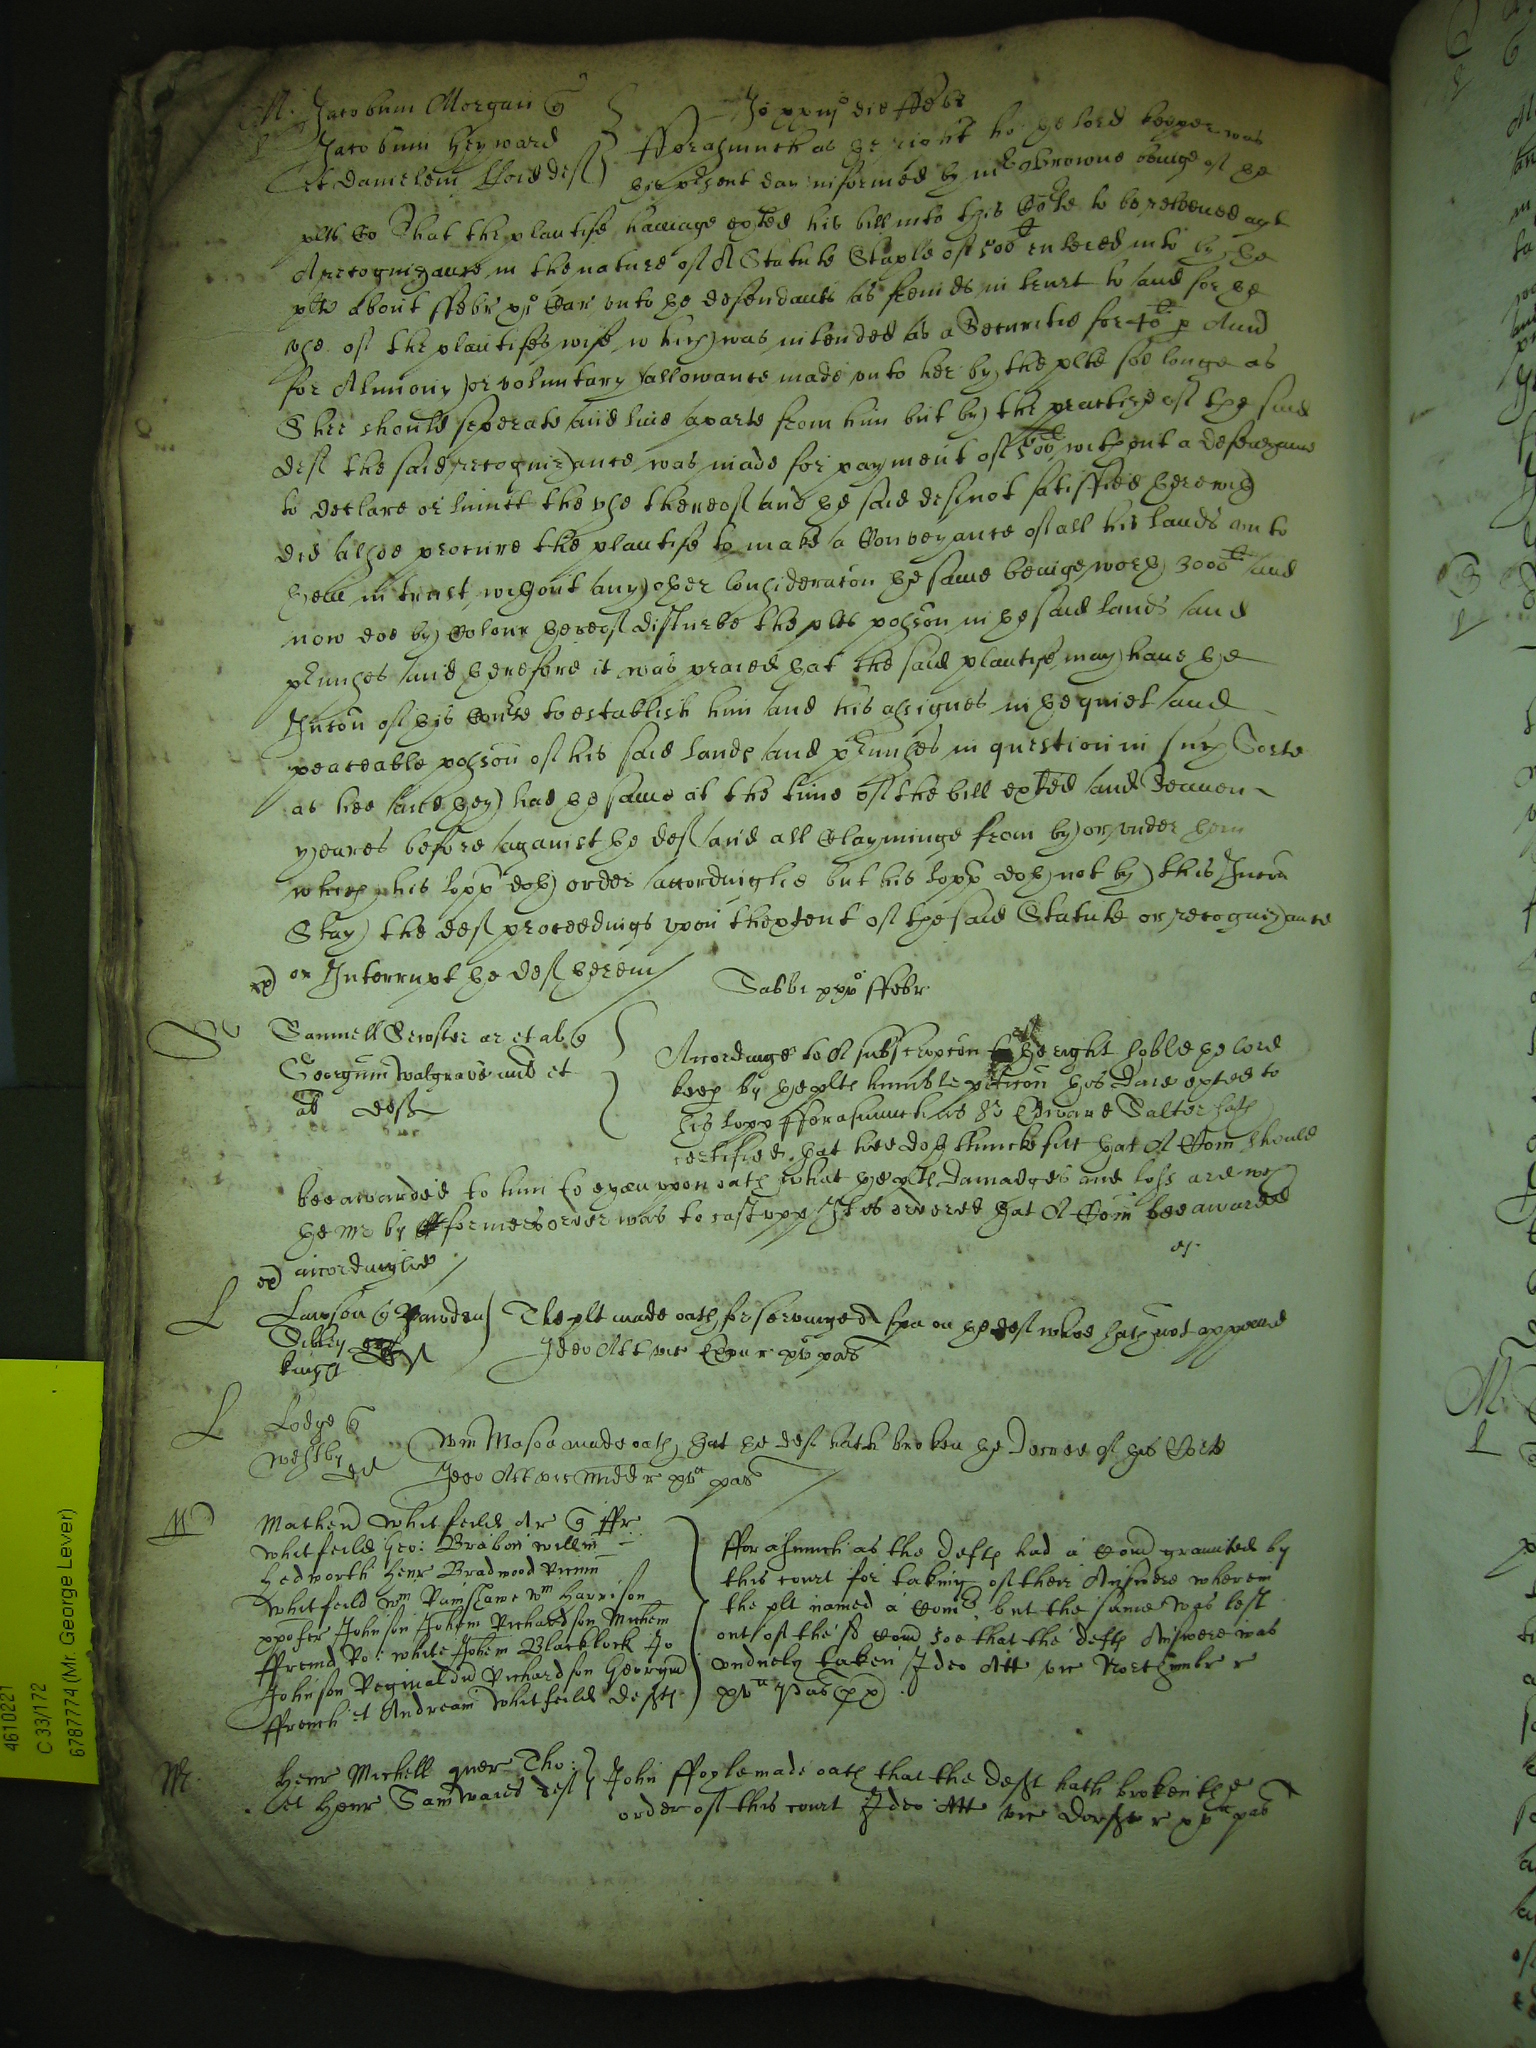 M. Jacobum Morgan
Jacobum Heyward
et Danielem Lloid def
Jo xxiijo die ffebr
fforasmuch as the right ho: the lord keeper was
this present day informed by mr Browne beinge of the
plts Co That the plantife haueinge exted his bill into this Corte to be releeued agt
A recognizance in the nature of A Statute Staple of 500li entered into by the
plte about ffebr xjo Car unto the defendants as freinds in trust to and for the
vse of the plantifes wife which was intended as a Securitie for 40li p Annu
for Alimony or voluntary allowance made vnto her by the plte soe longe as
Shee should seperate and liue aparte from him but by the practise of the said
def the said recognizance was made for payment of 500li without a defeazance
to declare or limitt the vse thereof and the said def not satisffied therewith
did alsoe procure the plantife to make a Conveyance of all his lands vnto
them in trust without any other consideracon the same beinge worth 3000li and
now doe by Colour thereof disturbe the plts possion in the said lands and
prmisses and therefore it was praied that the said plantife may haue the
Jnicon of this Courte to establish him and his assignes in the quiet and
peaceable possion of his said lands and prmisses in question in such Sorte
as hee and they had the same at the time of the bill exted and Seauen
yeares before against the def and all Clayminge from by or vnder them
which his lopp doth order accordinglie but his lopp doth not by this Jnicon
Stay the def proceedings vpon thextent of the said Statute or recognizance
or Interrupt the def therein
Sabbi xxvo ffebr
Samuell ar et al
Georgium Walgraue et
al defts
Accordinge to A subscripcon of the right hoble the lord
keep by the plts humble peticon this daie exted to
his lopp fforasmuch as Sr Edward Salter hath
certified that hee doth thincke fitt that A Com should
bee awarded to him to exam vpon oath what the plts Damadges and loss are wch
the mr by former order was to cast vpp It is ordered that A Com bee awarded
accordinglie
L
Lawson
Sibley
kinge
The plt made oath for servinge A spa on the def whoe hath not appeared
Jdeo Att vic Ebour xvo pas
L
Lodge
Westby def
Wm Mason made oath that the def hath broken the Decree of this Corte
Jdeo Att vic Midd r xva pas
M
Mathew Whitfeild Ar ffr
Whitfeild Geo: Brabon willm
Hedworth Henr Bradwood
Whitfeild Wm Wm Harrison
xpofer Johnson Johem Richardson Michem
ffrennd Ro: White Johem Blacklock Jo
Johnson Reginaldu Richardson Georgiu
ffrench et Andream Whitfeild defts
fforasmuch as the defts had a Com graunted by
this court for taking of their Answere wherein
the plt named a Comr, but the same was left
out of the sd Com soe that the defts Answere was
vnduely taken Jdeo Att vic Northumbr r
xva Pas
M.
Henr Michell quer Tho:
et Henr Samwaies def
John ffoyle made oath that the deft hath broken the
order of this court Jdeo Att vic Dorsett r xva pas
4610221
C 33/172
6787774 (Mr. George Lever)